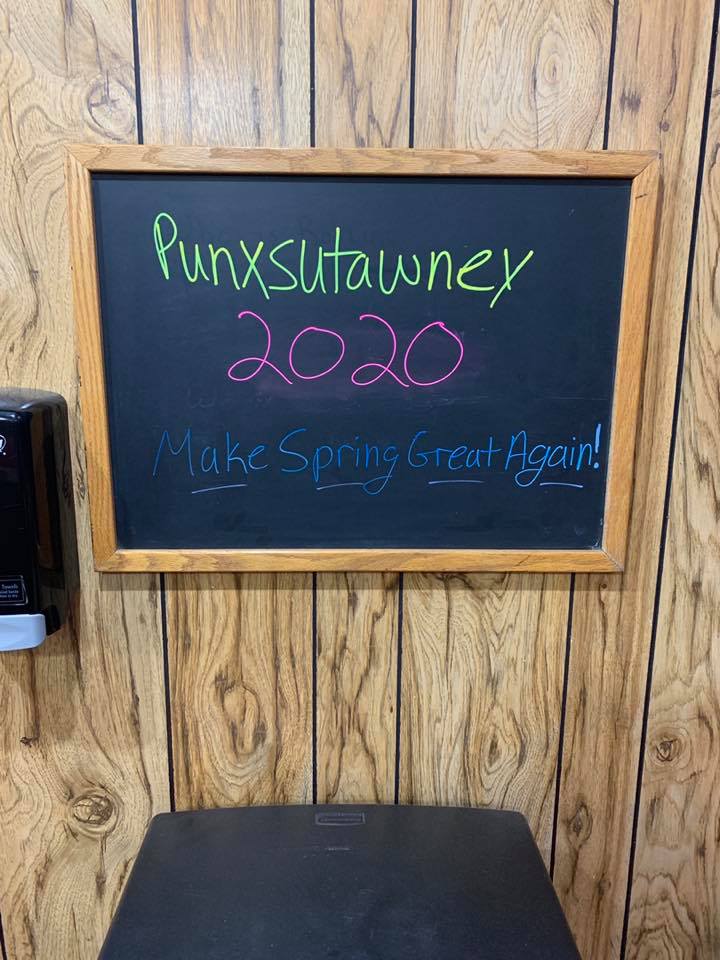 Punxsutawney
2020
Make Spring Great Again!